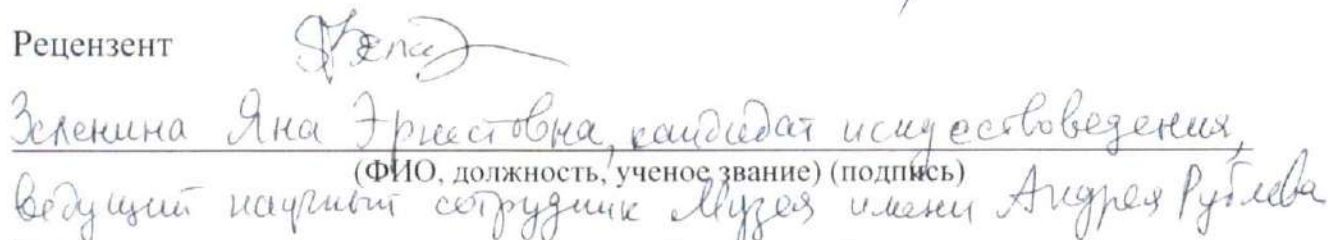 Рецензент
Зеленина Яна Эрнестовна, кандидат искусствоведения,
(ФИО, должность, ученое звание) (подпись)
ведущий научный сотрудник Музея имени Андрея Рублева